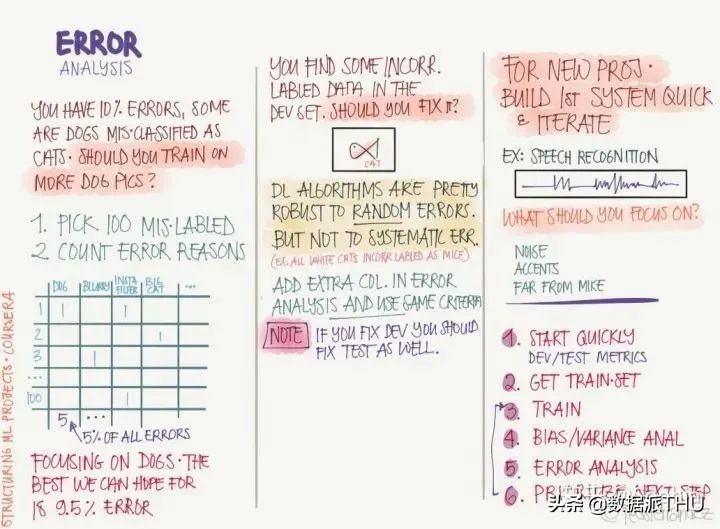 ERROR
ANALYSIS
YOU HAVE 10% ERRORS, SOME
ARE DOGS MIS-CLASSIFIED AS
CATS. SHOULD YOU TRAIN ON
MORE DOG PICS?
1. PICK 100 MIS-LABLED
2. COUNT ERROR REASONS
DOG BLURRY INSTA FILTER BIG CAT ...
1 1 1
2 1
3 1
...
100 1
5 ...
5% OF ALL ERRORS
FOCUSING ON DOGS. THE
BEST WE CAN HOPE FOR
IS 9.5% ERROR
STRUCTURING ML PROJECTS. COURSERA
YOU FIND SOME INCORR.
LABLED DATA IN THE
DEV SET. SHOULD YOU FIX IT?
CAT
DL ALGORITHMS ARE PRETTY
ROBUST TO RANDOM ERRORS.
BUT NOT TO SYSTEMATIC ERR.
(EX. ALL WHITE CATS INCORR LABLED AS MICE)
ADD EXTRA COL. IN ERROR
ANALYSIS AND USE SAME CRITERIA
NOTE IF YOU FIX DEV YOU SHOULD
FIX TEST AS WELL.
FOR NEW PROJ.
BUILD 1st SYSTEM QUICK
& ITERATE
EX: SPEECH RECOGNITION
WHAT SHOULD YOU FOCUS ON?
NOISE
ACCENTS
FAR FROM MIKE
1. START QUICKLY
DEV/TEST METRICS
2. GET TRAIN-SET
3. TRAIN
4. BIAS/VARIANCE ANAL
5. ERROR ANALYSIS
6. PRIORITIZE NEXT STEP
头条 @数据派THU